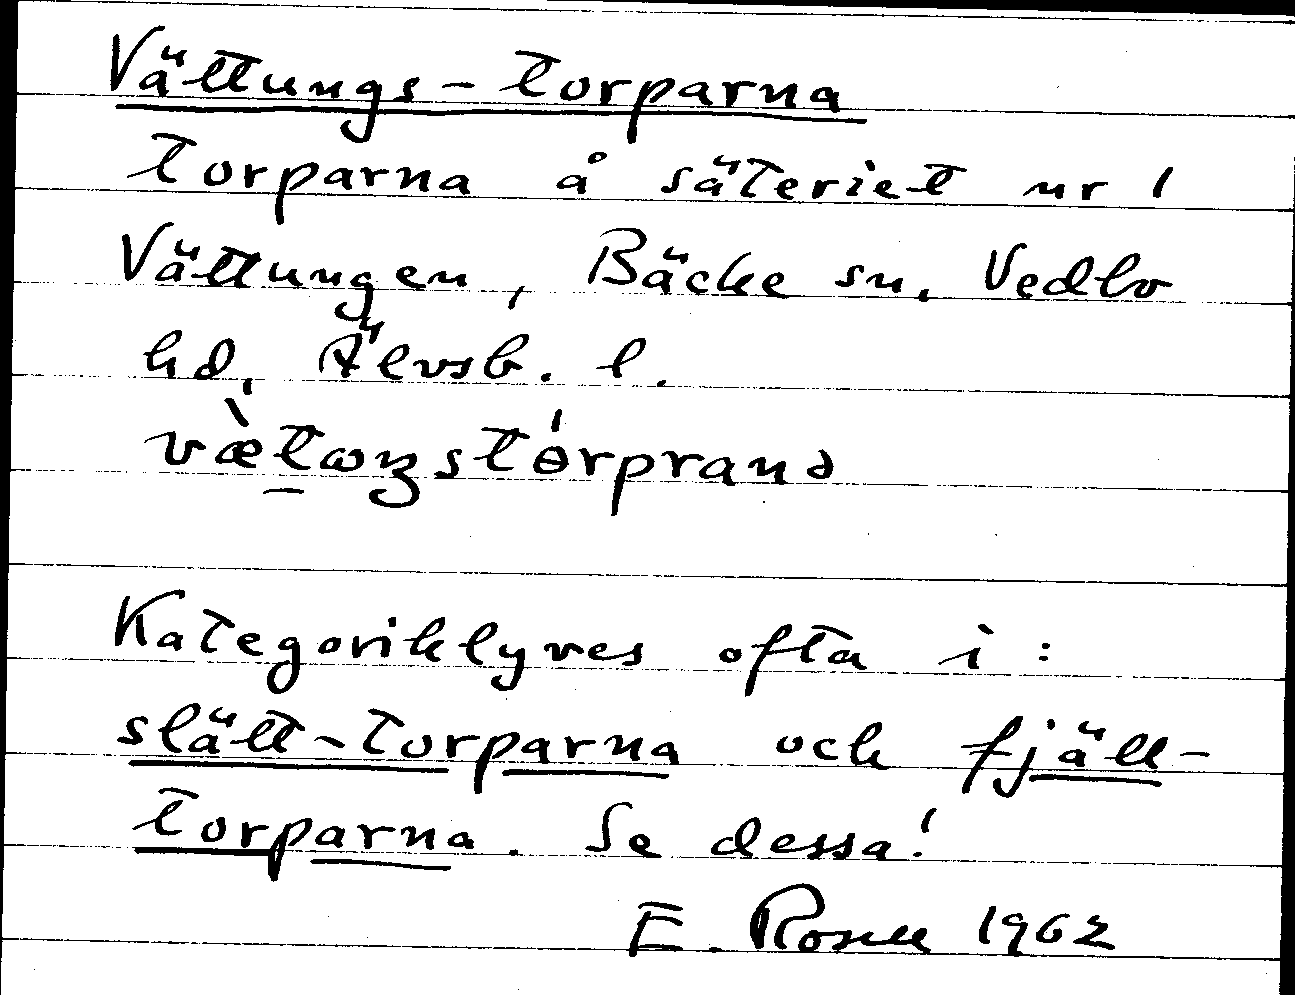 Vättungs-torparna
torparna å säteriet nr 1
Vättungen, Bäcke sn. Vedbo
hd, Älvsb. l.
Kategoriklyves ofta i:
slätt-torparna och fjäll-
torparna. Se dessa!
E. 1962